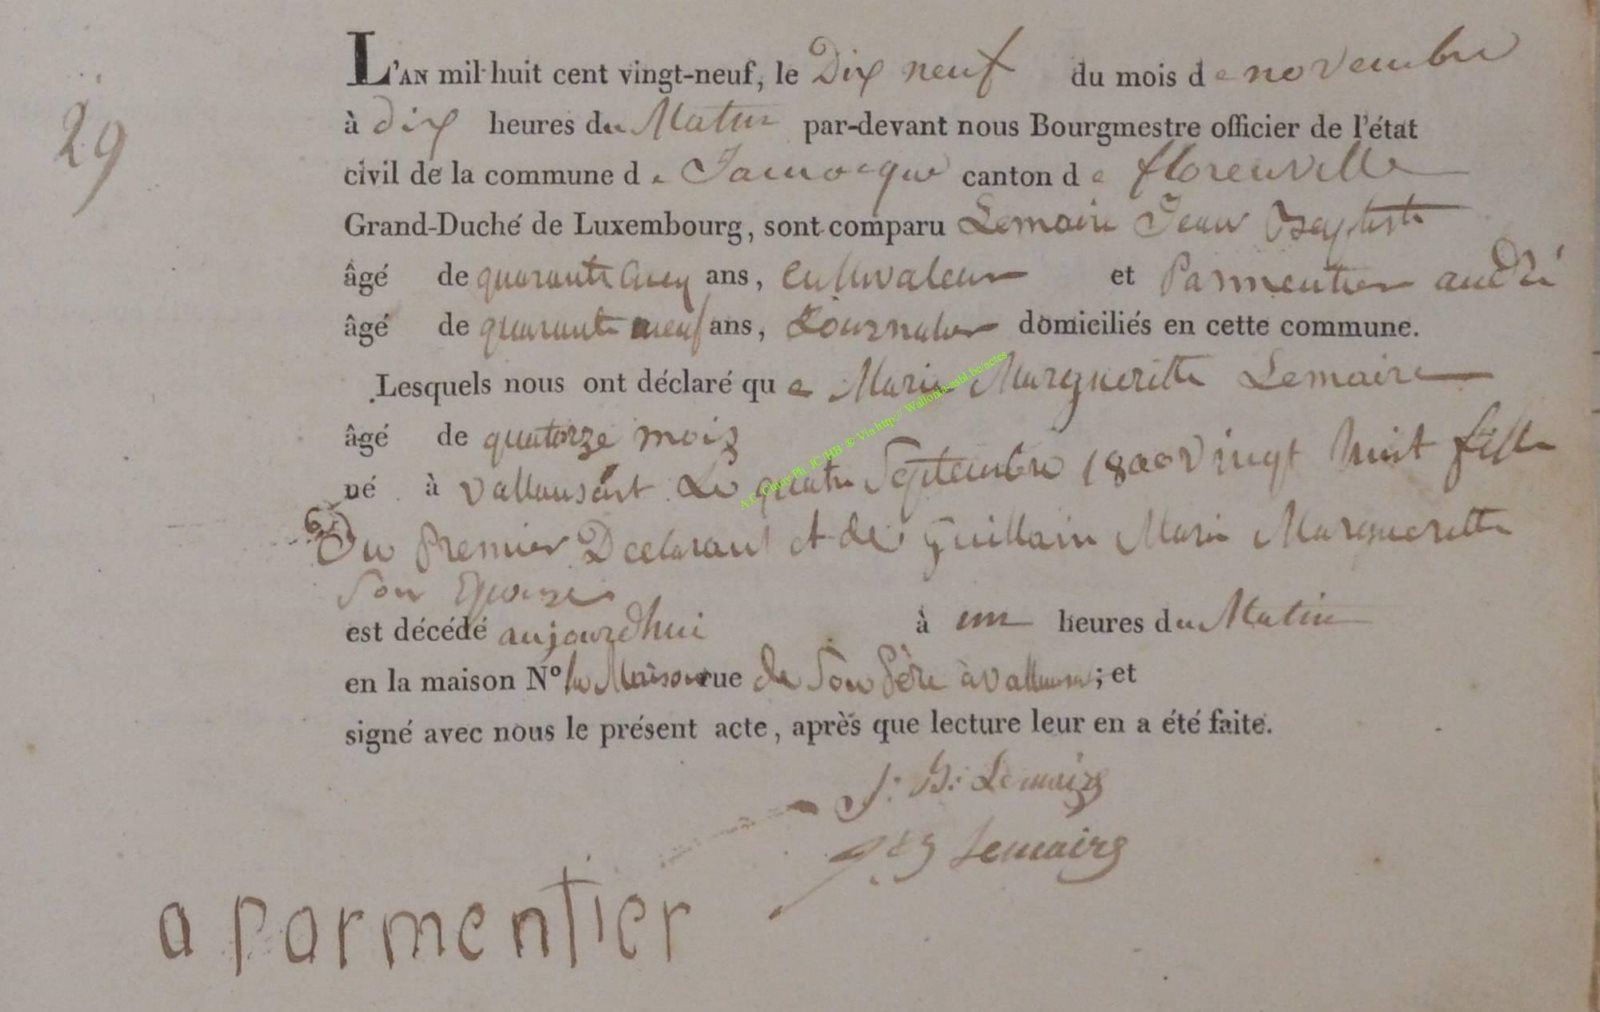 29
L'AN mil huit cent vingt-neuf, le Dix neuf du mois de novembre
à dix heures du Matin par-devant nous Bourgmestre officier de l'état
civil de la commune de Jamoigne canton de florenville
Grand-Duché de Luxembourg, sont comparu Lemaire Jean Baptiste
âgé de quarante cinq ans, Cultivateur et Parmentier andré
âgé de quarante neuf ans, Journalier domiciliés en cette commune.
Lesquels nous ont déclaré que Marie Margueritte Lemaire
âgé de quatorze mois
né à vallansart Le quatre Septembre 1800 vingt huit fille
Du Premier Declarant et de Guillain Marie Margueritte
Son Epouse
est décédé aujourdhui à un heures du Matin
en la maison Nº la Maison rue de Son Père à vallansart; et
signé avec nous le présent acte, après que lecture leur en a été faite.
J. B. Lemaire
Lemaire
a parmentier
© Via http:// Wallonia-asbl.be/actes